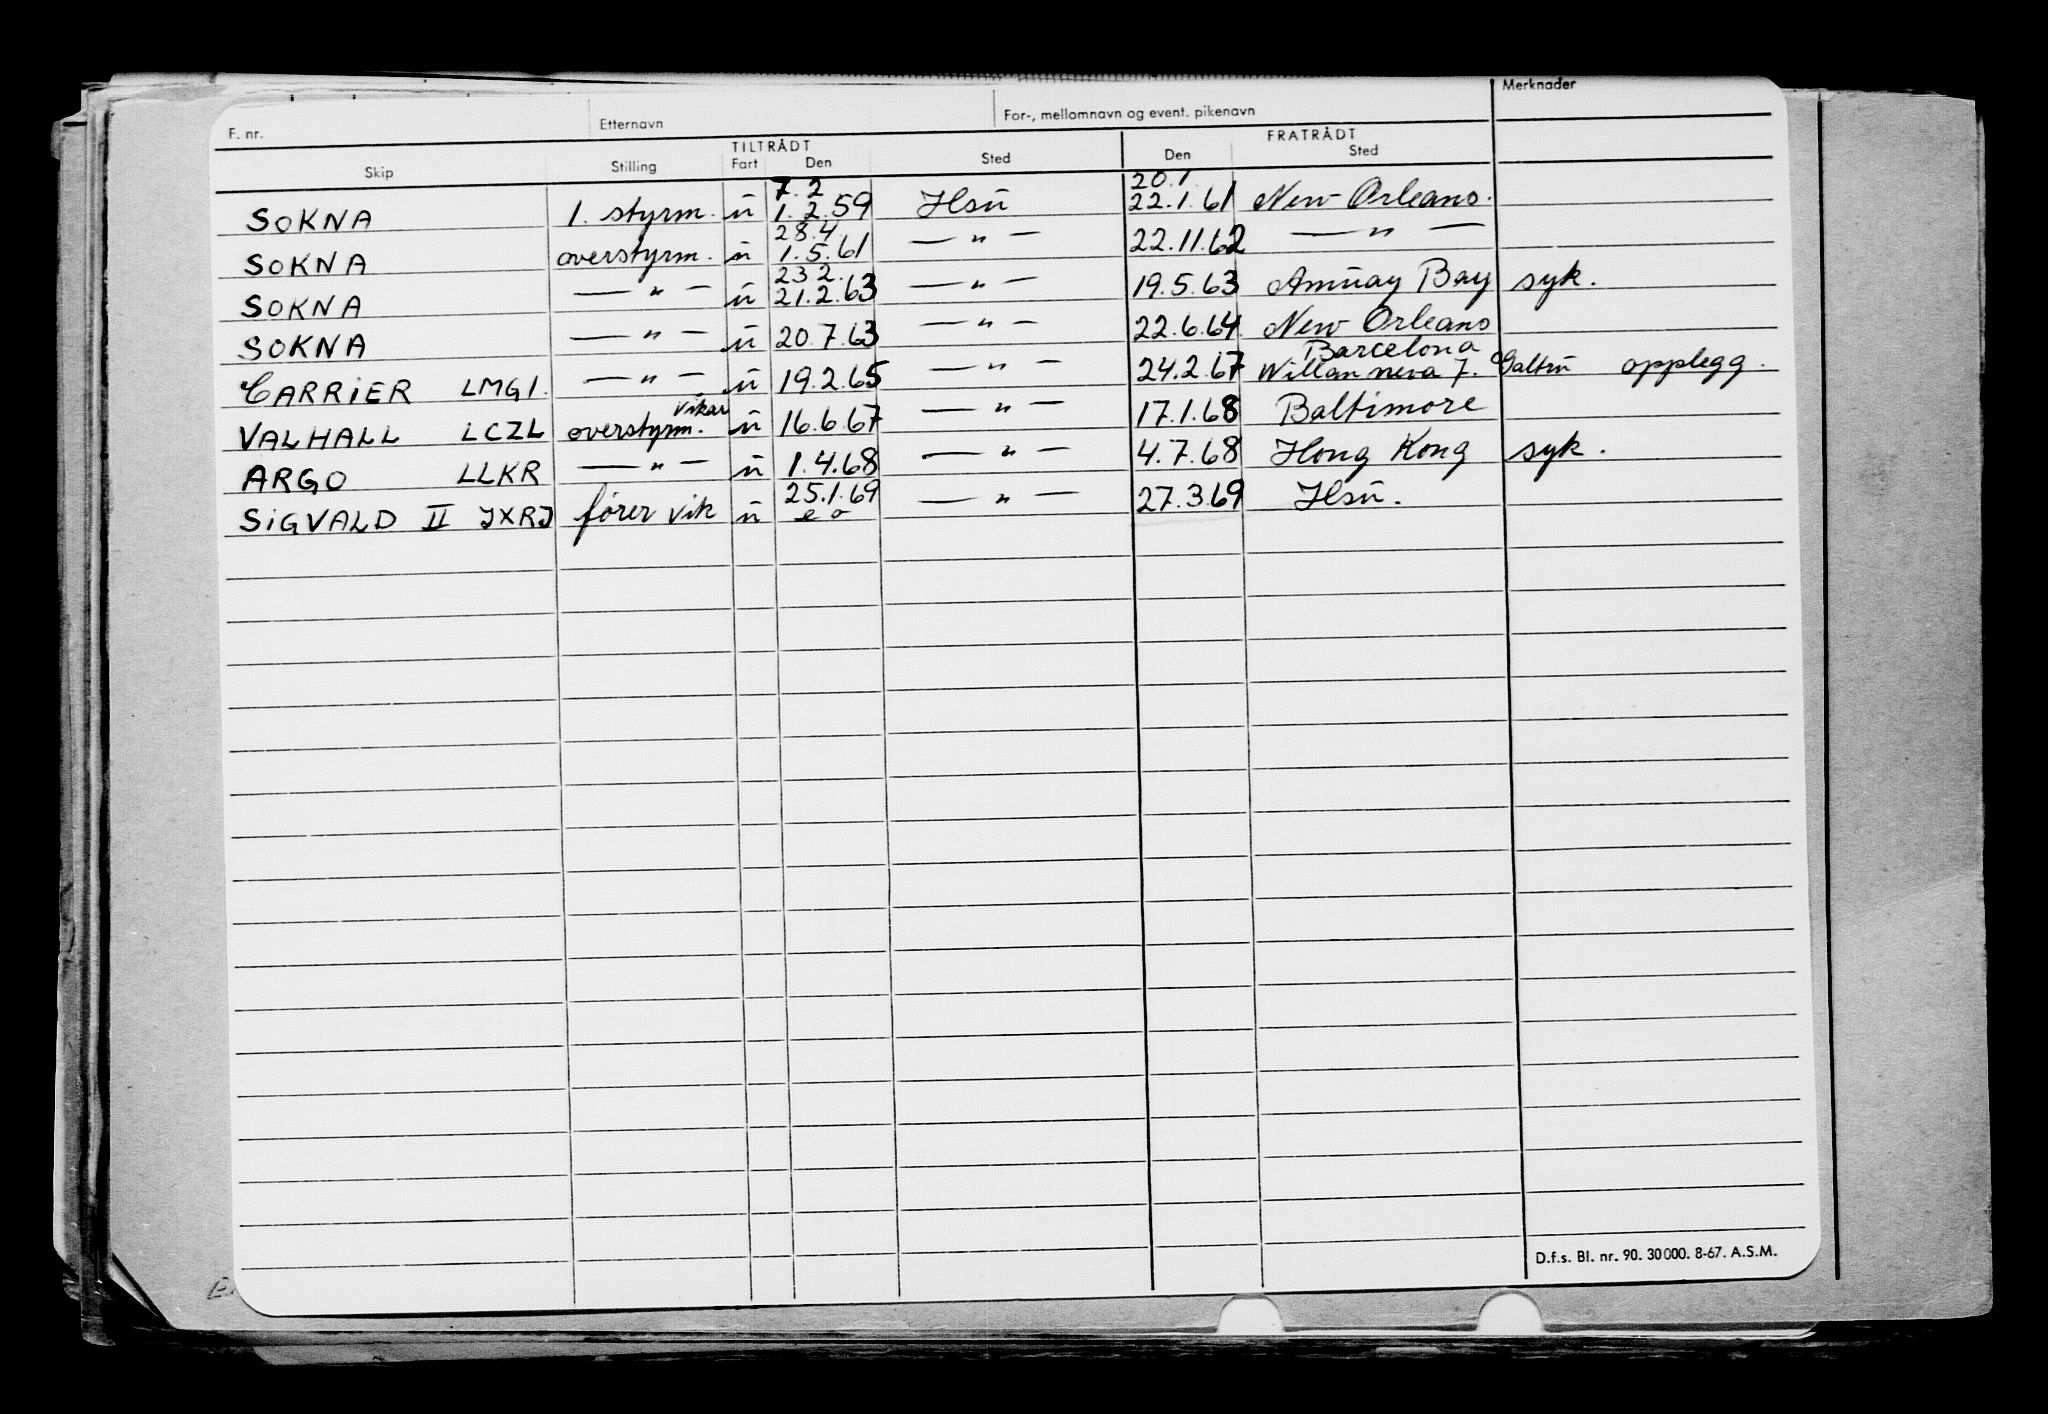 Merknader
F. nr. Etternavn For-, mellomnavn og event. pikenavn
TILTRÅDT FRATRÅDT
Skip Stilling Fart Den Sted Den Sted
7.2 20.1
SOKNA 1. styrm. ü 1.2.59 Hsü 22.1.61 New Orleans.
28.4
SOKNA overstyrm. ü 1.5.61 — " — 22.11.62 — " —
23.2.
SOKNA — " — ü 21.2.63 — " — 19.5.63 Amuay Bay syk.
SOKNA — " — ü 20.7.63 — " — 22.6.64 New Orleans
Barcelona
CARRIER LMGI. — " — ü 19.2.65 — " — 24.2.67 7. opplegg.
vikar
VALHALL LCZL overstyrm. ü 16.6.67 — " — 17.1.68 Baltimore
ARGO LLKR — " — ü 1.4.68 — " — 4.7.68 Hong Kong syk.
25.1.69
SIGVALD II JXRJ fører vik ü e o — " — 27.3.69 Hsü.
D.f.s. Bl. nr. 90. 30000. 8-67. A.S.M.